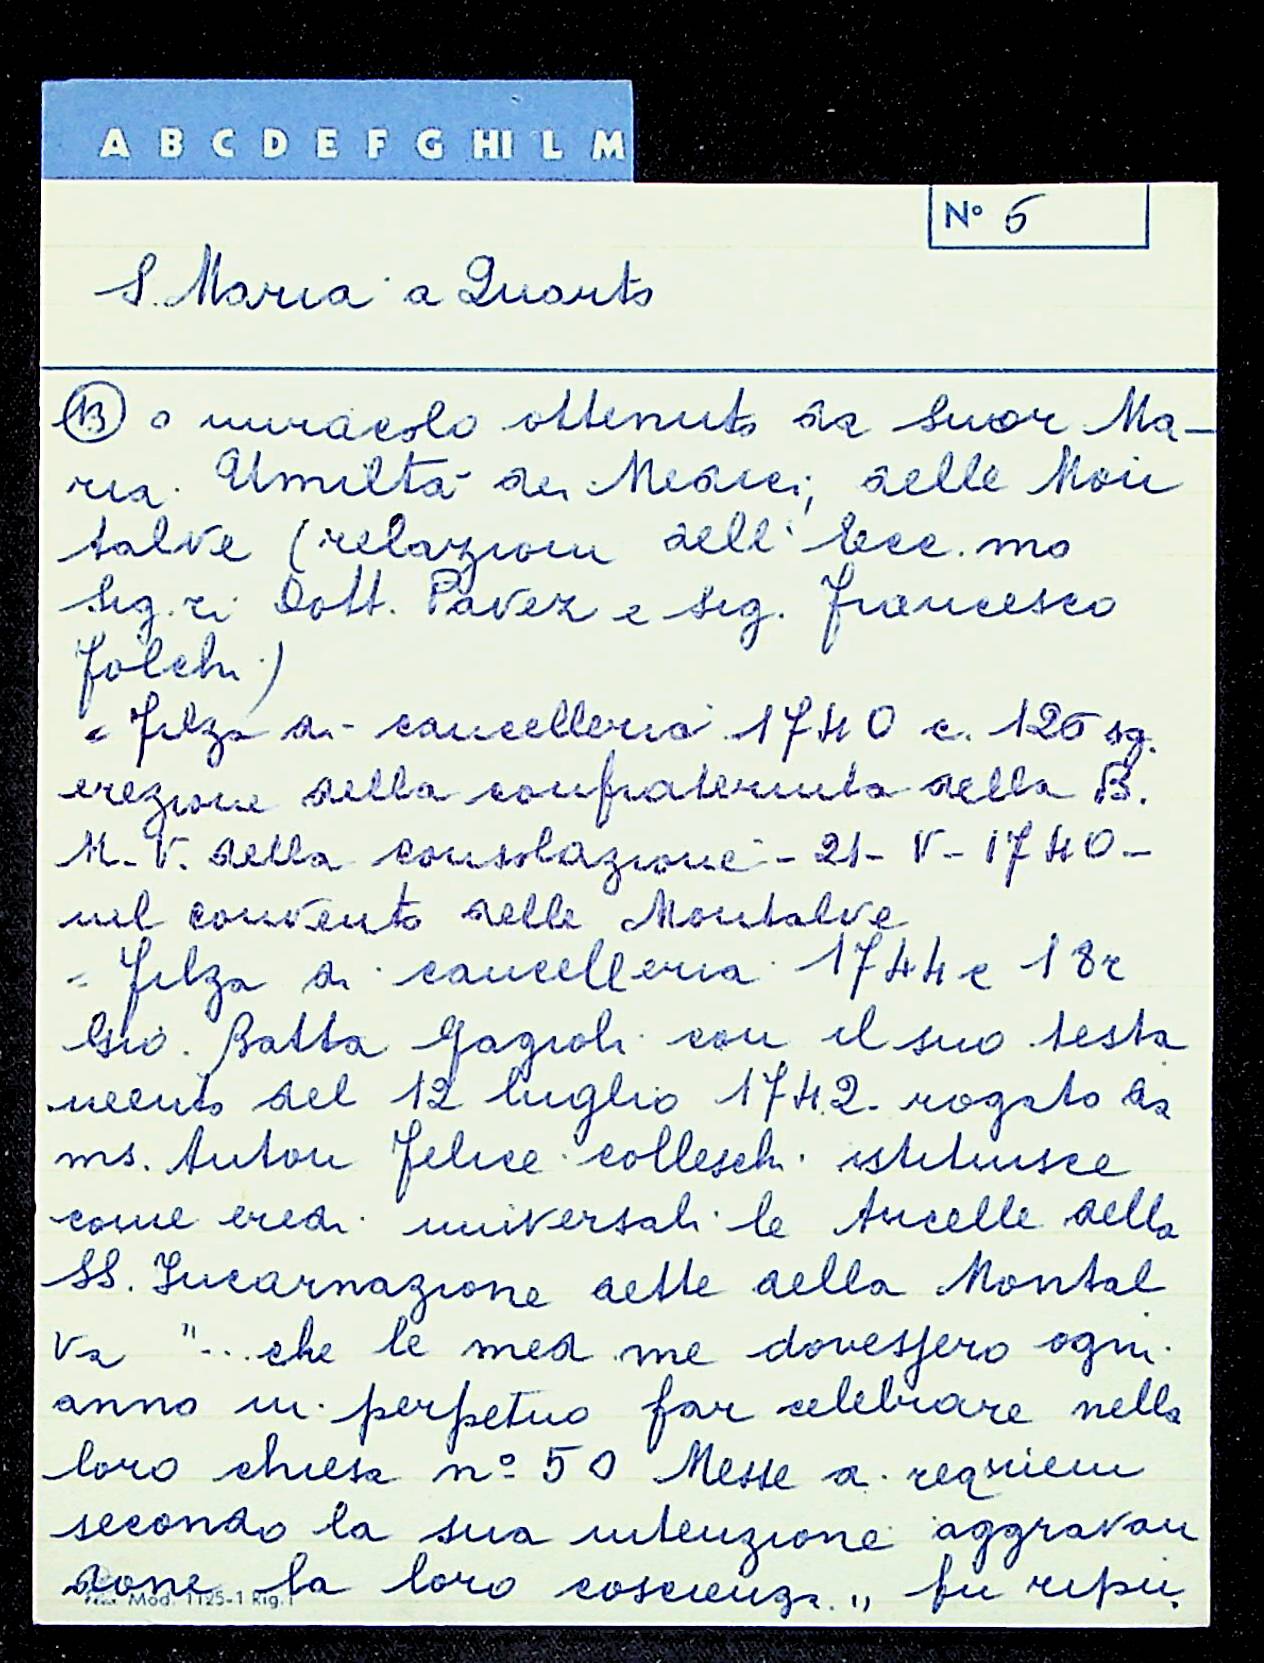 A B C D E F G HI L M
N° 5
S. Maria a Quarto
13 o miracolo ottenuto da Suor Ma-
ria Umiltà dei Medici, delle Mon
talve (relazioni dell' Ecc.mo
Sig.ri Dott. Pavez e Sig. Francesco
Folchi)
= Filza di cancelleria 1740 c. 126 sg.
erezione della confraternita della B.
M. V. della consolazione - 21 - V - 1740 -
nel convento delle Montalve
= Filza di cancelleria 1744 c 18r
Gio. Batta Gagioli con il suo testa
mento del 12 luglio 1742 rogato da
ms. Anton Felice Colleschi istituisce
come eredi universali le Ancelle della
SS. Incarnazione dette della Montal
va "... che le med.me dovessero ogni
anno in perpetuo far celebrare nella
loro chiesa n° 50 Messe a requiem
secondo la sua intenzione aggravan
done la loro coscienza" fu
Mod. 1125-1 Rig.1